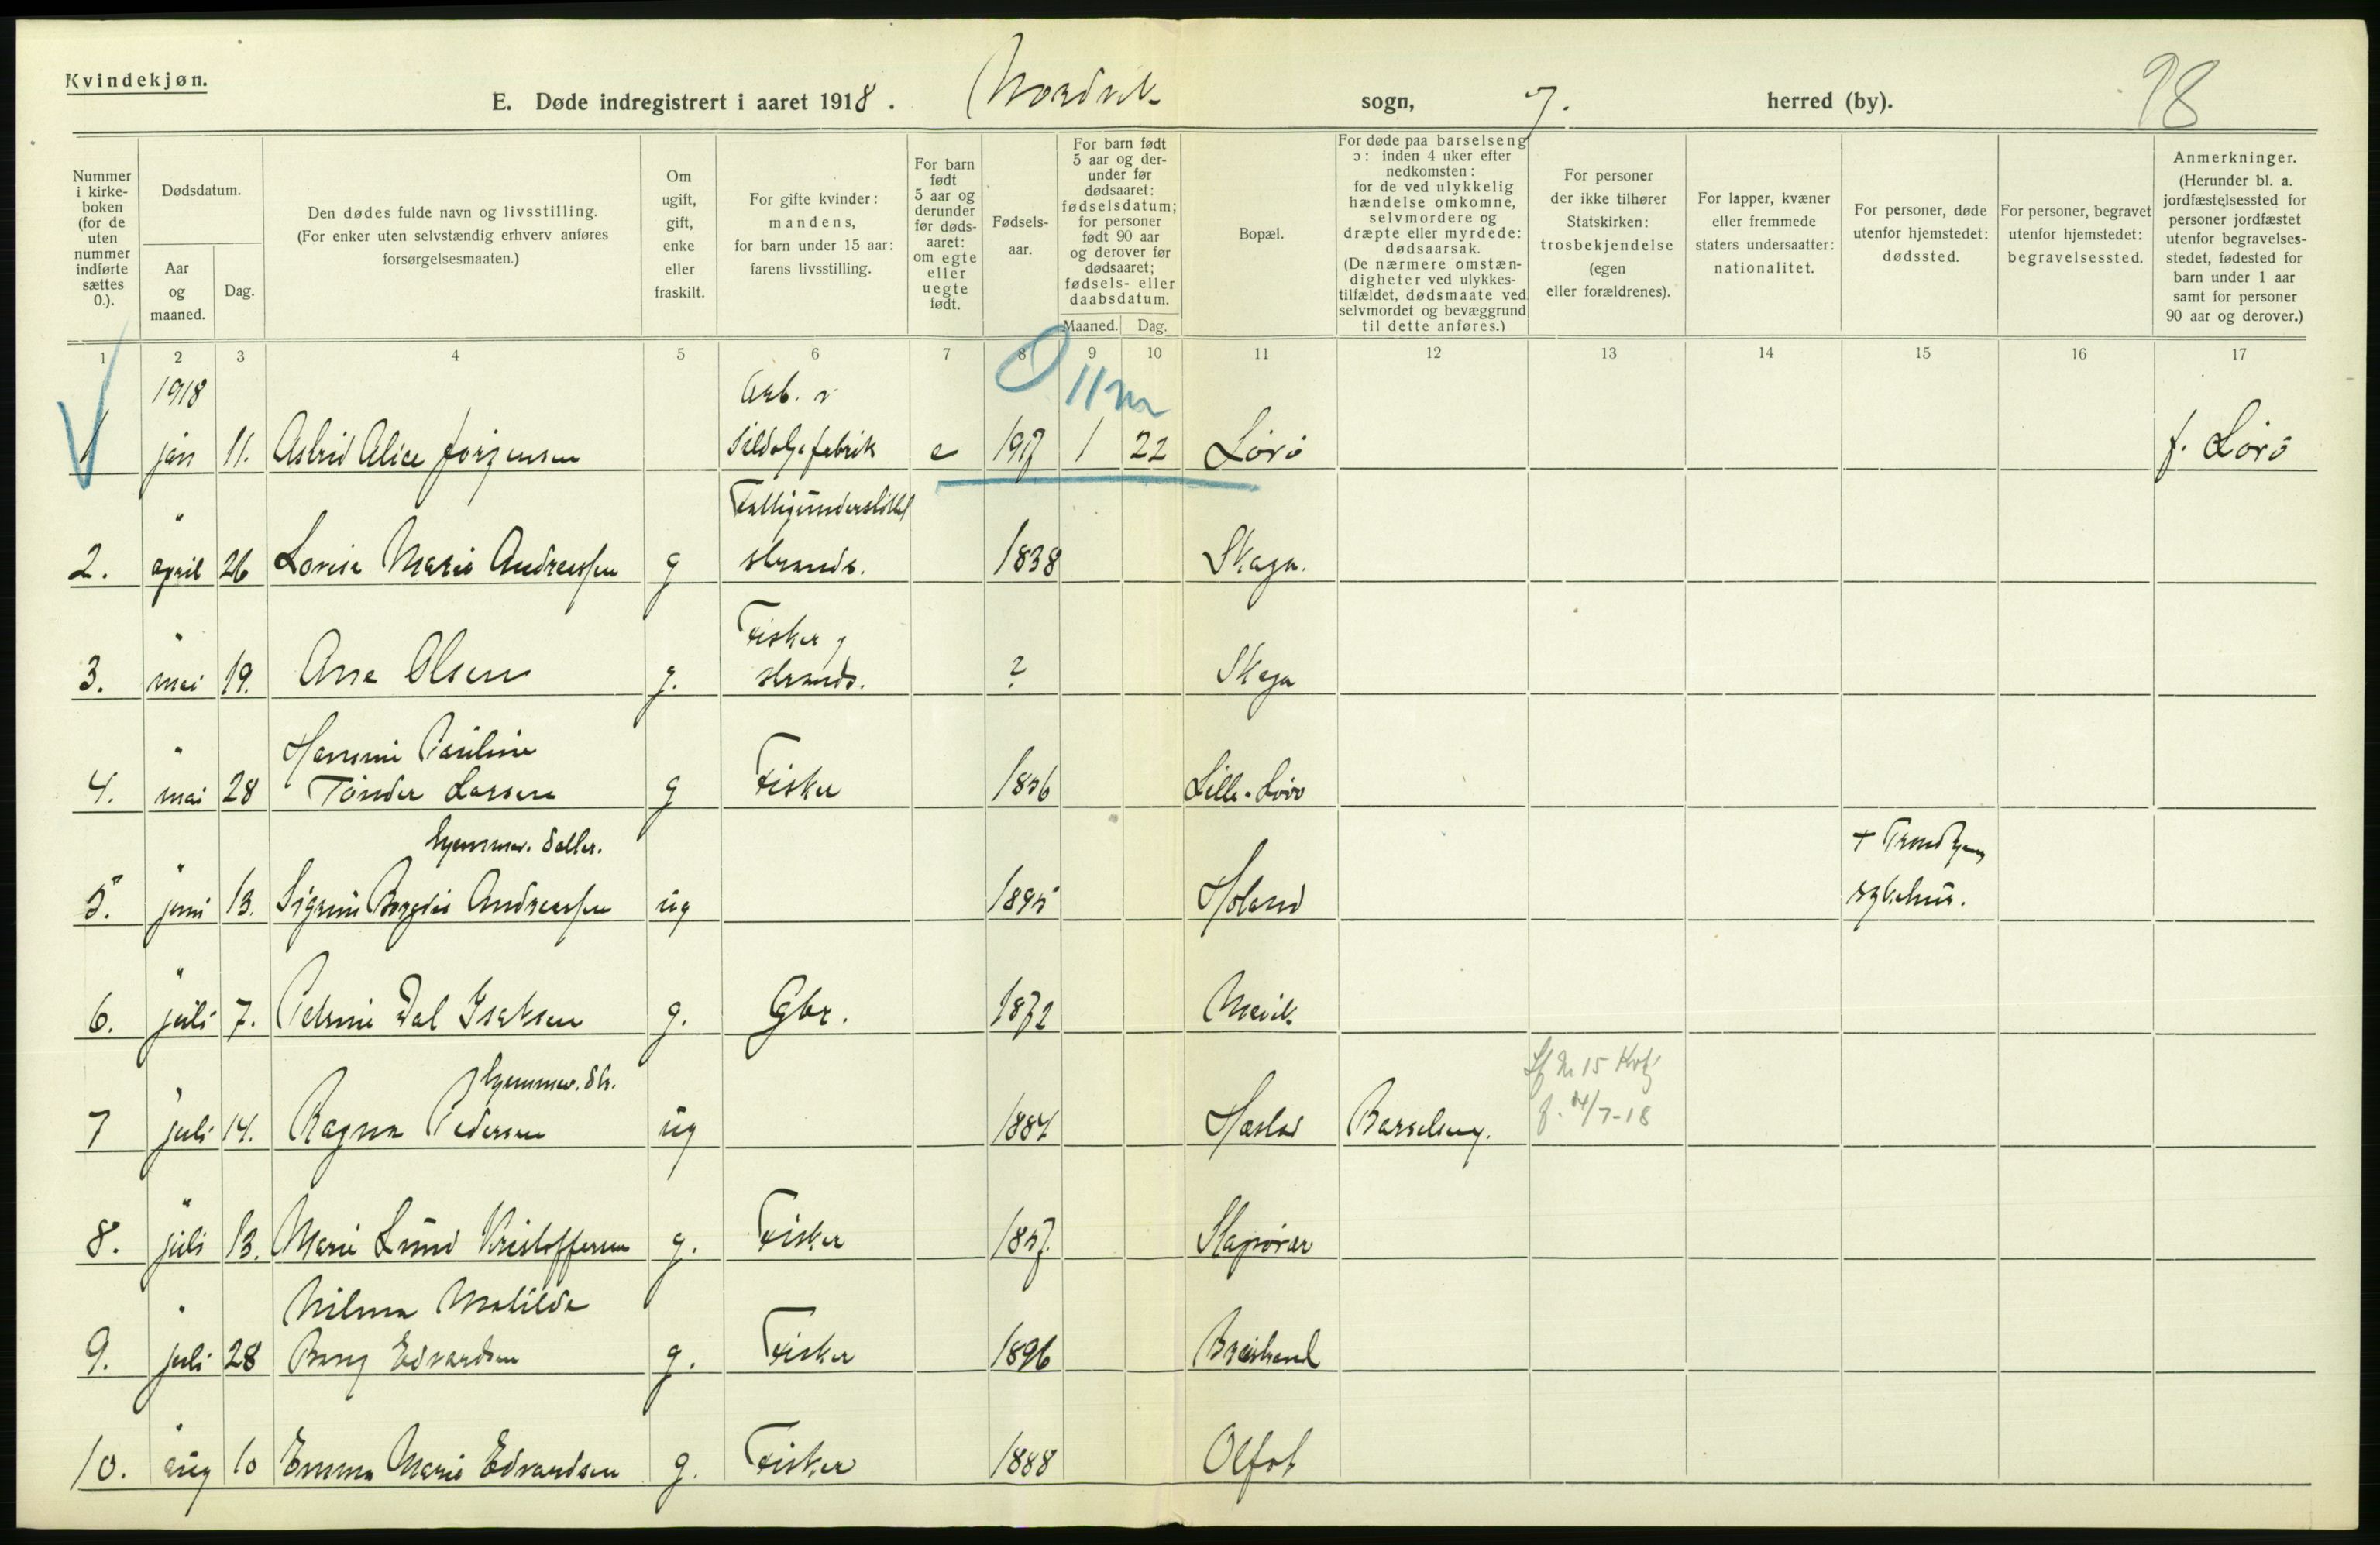 Kvindekjøn.
E. Døde indregistrert i aaret 1918. Nordvik sogn, herred (by).
98
Nummer i kirke-boken (for de uten nummer indførte sættes 0.).
Dødsdatum.
Aar og maaned.
Dag.
Den dødes fulde navn og livsstilling. (For enker uten selvstændig erhverv anføres forsørgelsesmaaten.)
Om ugift, gift, enke eller fraskilt.
For gifte kvinder: mandens, for barn under 15 aar: farens livsstilling.
For barn født 5 aar og derunder før døds-aaret: om egte eller uegte født.
Fødsels-aar.
For barn født 5 aar og der-under før dødsaaret: fødselsdatum; for personer født 90 aar og derover før dødsaaret; fødsels- eller daabsdatum.
Maaned.
Dag.
Bopæl.
For døde paa barselseng ɔ: inden 4 uker efter nedkomsten: for de ved ulykkelig hændelse omkomne, selvmordere og dræpte eller myrdede: dødsaarsak. (De nærmere omstæn-digheter ved ulykkes-tilfældet, dødsmaate ved selvmordet og bevæggrund til dette anføres.)
For personer der ikke tilhører Statskirken: trosbekjendelse (egen eller forældrenes).
For lapper, kvæner eller fremmede staters undersaatter: nationalitet.
For personer, døde utenfor hjemstedet: dødssted.
For personer, begravet utenfor hjemstedet: begravelsessted.
Anmerkninger. (Herunder bl. a. jordfæstelsessted for personer jordfæstet utenfor begravelses-stedet, fødested for barn under 1 aar samt for personer 90 aar og derover.)
1 2 3 4 5 6 7 8 9 10 11 12 13 14 15 16 17
1918 Arb. v 0 11 m
1 jan 11. Astrid Alice Jørgensen Sildoljefabrik e 1917 1 22 Lövö f. Lövö
" Fattigunderstøttet
2. april 26 Lovise Marie Andreassen g strands. 1838 Skaga.
" Fisker
3. mai 19. Ane Olsen g. strands. ? Skaga
" Hansine Pauline
4. mai 28 Tönder Larsen g Fisker 1856 Lille-Lövö
" hjemmev. datter. + Trondhjem
5. juni 13. Sigrun Borgdis Andreassen ug 1895 Holand sykehus.
"
6. juli 7. Petrine Dal Isaksen g. Gbr. 1872 Mevik
" hjemmev. Lf Nr 15 Kvkj
7 juli 14. Ragna Pedersen ug 1887 Hæstad Barselseng. f. 4/7-18
"
8. juli 13. Marie Lund Kristoffersen g. Fisker 1857. Slapöver
" Wilma Matilde
9. juli 28 Berg Edvardsen g. Fisker 1896 Breistrand
"
10. aug 10 Emma Marie Edvardsen g. Fisker 1888 Olfot